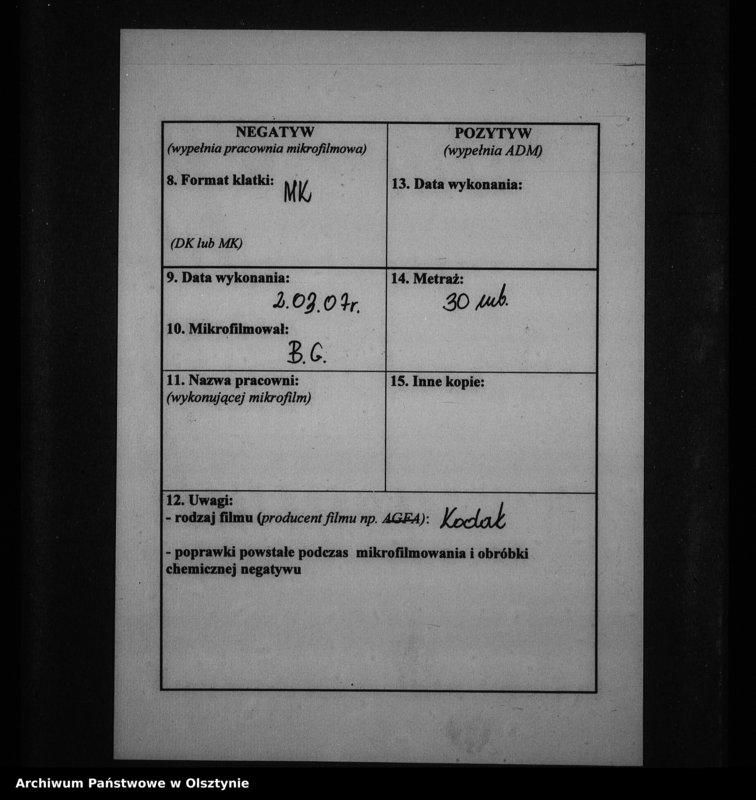 NEGATYW
(wypełnia pracownia mikrofilmowa)
8. Format klatki: MK
(DK lub MK)
POZYTYW
(wypełnia ADM)
13. Data wykonania:
9. Data wykonania:
2.03.07r.
10. Mikrofilmował:
B.G.
14. Metraż:
30 mb.
11. Nazwa pracowni:
(wykonującej mikrofilm)
15. Inne kopie:
12. Uwagi:
- rodzaj filmu (producent filmu np. AGFA): Kodak
- poprawki powstałe podczas mikrofilmowania i obróbki
chemicznej negatywu
Archiwum Państwowe w Olsztynie